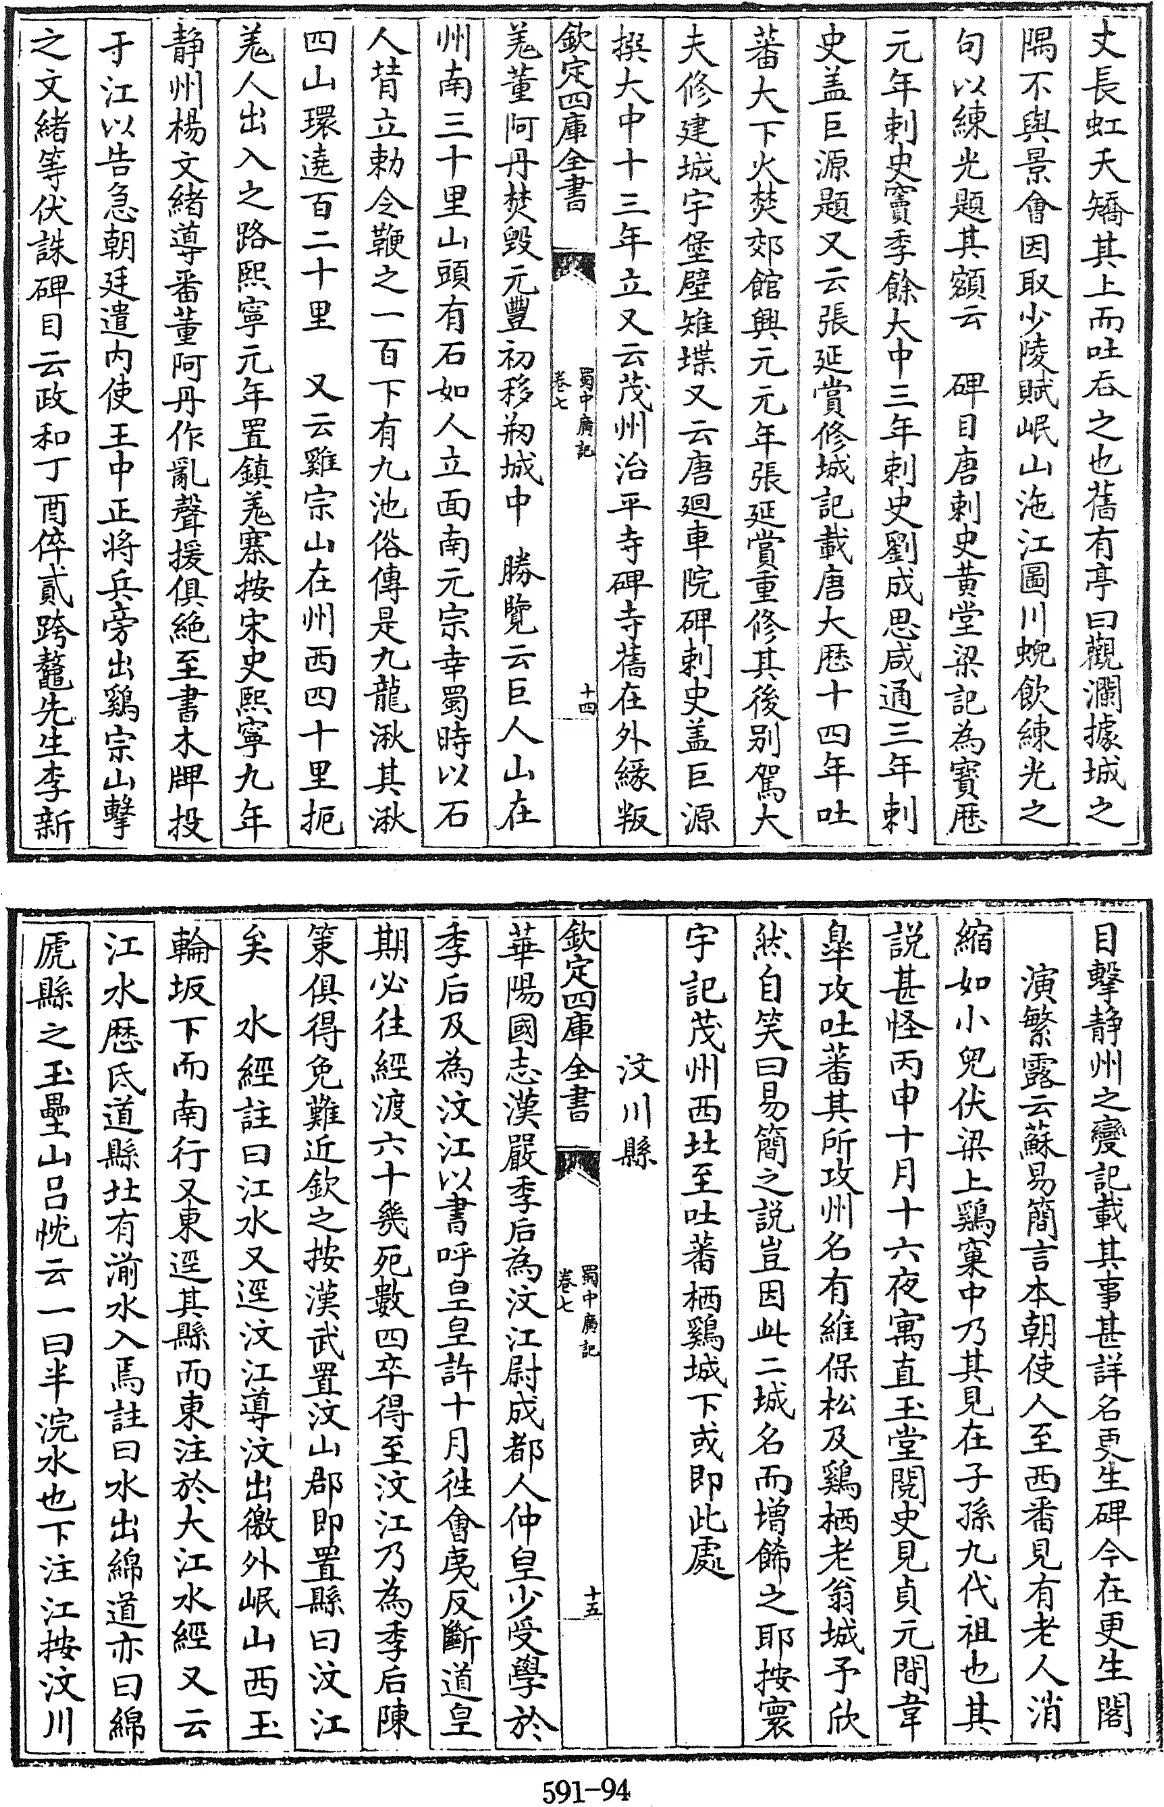 丈長虹夭矯其上而吐吞之也舊有亭曰觀瀾據城之
隅不與景會因取少陵賦岷山沲江圖川蜺飲練光之
句以練光題其額云　碑目唐刺史黄堂梁記為寳歴
元年刺史竇季餘大中三年刺史劉成思咸通三年刺
史盖巨源題又云張延賞修城記載唐大歴十四年吐
蕃大下火焚郊館興元元年張延賞重修其後别駕大
夫修建城宇堡壁雉堞又云唐廻車院碑刺史盖巨源
撰大中十三年立又云茂州治平寺碑寺舊在外緣叛
欽定四庫全書
蜀中廣記
卷七
十四
羗董阿丹焚毁元豐初移剏城中　勝覽云巨人山在
州南三十里山頭有石如人立面南元宗幸蜀時以石
人背立勅令鞭之一百下有九池俗傳是九龍湫其湫
四山環遶百二十里　又云雞宗山在州西四十里扼
羗人出入之路熙寧元年置鎮羗寨按宋史熙寧九年
靜州楊文緒導番董阿丹作亂聲援俱絶至書木牌投
于江以告急朝廷遣内使王中正將兵旁出鷄宗山擊
之文緒等伏誅碑目云政和丁酉倅貳跨鼇先生李新
目擊静州之變記載其事甚詳名更生碑今在更生閣
演繁露云蘇易簡言本朝使人至西番見有老人消
縮如小兒伏梁上鷄窠中乃其見在子孫九代祖也其
説甚怪丙申十月十六夜寓直玉堂閲史見貞元間韋
臯攻吐蕃其所攻州名有維保松及鷄栖老翁城予欣
然自笑曰易簡之説豈因此二城名而增飾之耶按寰
宇記茂州西北至吐蕃栖鷄城下或即此處
汶川縣
欽定四庫全書
蜀中廣記
卷七
十五
華陽國志漢嚴季后為汶江尉成都人仲皇少受學於
季后及為汶江以書呼皇皇許十月徃會夷反斷道皇
期必往經渡六十幾死數四卒得至汶江乃為季后陳
策俱得免難近欽之按漢武置汶山郡即置縣曰汶江
矣　水經註曰江水又逕汶江導汶出徼外岷山西玉
輪坂下而南行又東逕其縣而東注於大江水經又云
江水歴氐道縣北有湔水入焉註曰水出綿道亦曰綿
虒縣之玉壘山呂忱云一曰半浣水也下注江按汶川
591-94